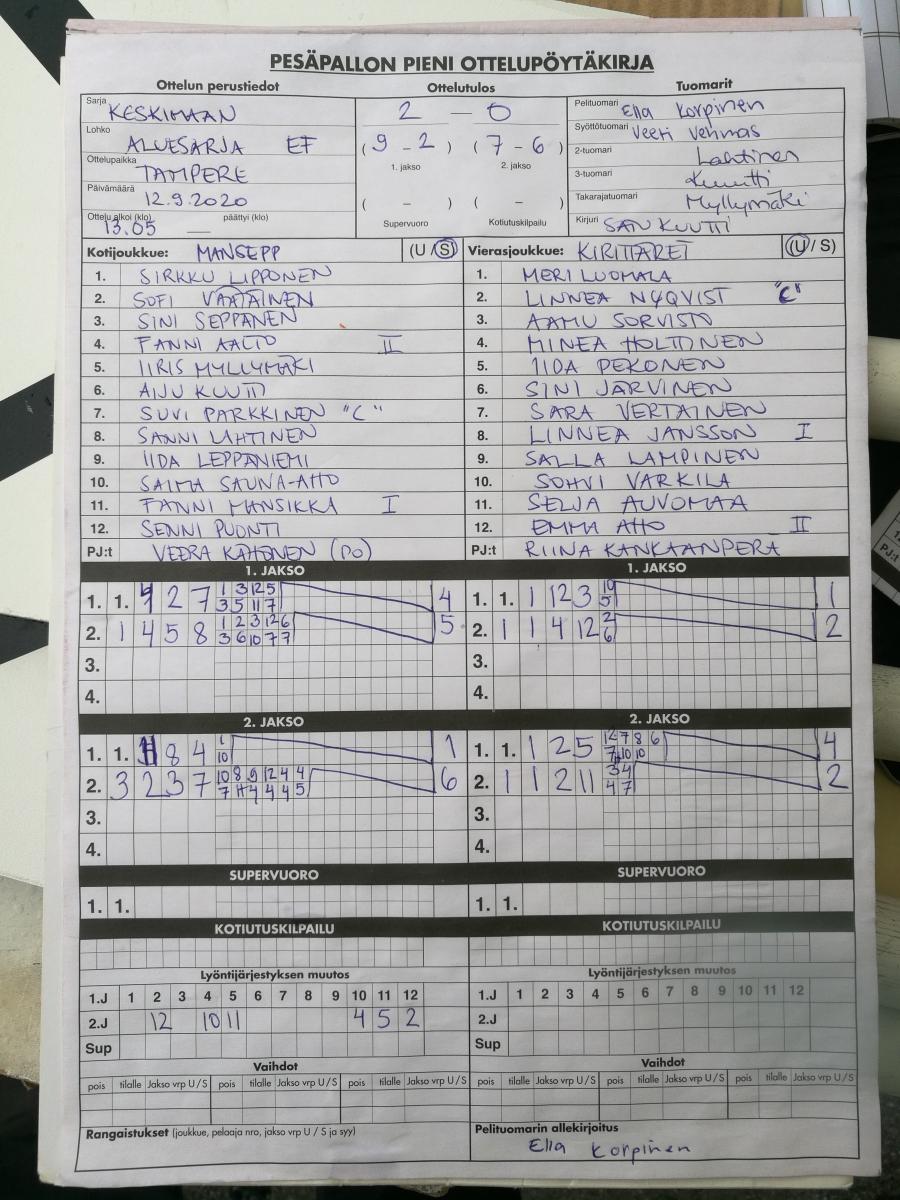 PESÄPALLON PIENI OTTELUPÖYTÄKIRJA
Ottelun perustiedot Ottelutulos Tuomarit
Sarja KESKIMAAN 2 — 0 Pelituomari Ella Korpinen
Lohko ALUESARJA EF (9 - 2) (7 - 6) Syöttötuomari Veeti Vehmas
1. jakso 2. jakso
Ottelupaikka TAMPERE 2-tuomari Lahtinen
Päivämäärä 12.9.2020 3-tuomari Kuutti
( - ) ( - ) Takarajatuomari Myllymäki
Ottelu alkoi (klo) 13.05 päättyi (klo) — Supervuoro Kotiutuskilpailu Kirjuri SAN KUUTTI
Kotijoukkue: MANSEPP (U/S) Vierasjoukkue: KIRITTÄRET (U/S)
1. SIRKKU LIPPONEN 1. MERI LUOMALA
2. SOFI VÄÄTÄINEN 2. LINNEA NYQVIST "C"
3. SINI SEPPÄNEN 3. AAMU SORVISTO
4. FANNI AALTO II 4. MINEA HOLTTINEN
5. IIRIS MYLLYMÄKI 5. IIDA PEKONEN
6. AIJU KUUTTI 6. SINI JÄRVINEN
7. SUVI PARKKINEN "C" 7. SARA VERTAINEN
8. SANNI LAHTINEN 8. LINNEA JANSSON I
9. IIDA LEPPÄNIEMI 9. SALLA LAMPINEN
10. SAIMA SAUNA-AHO 10. SOHVI VARKILA
11. FANNI MANSIKKA I 11. SELJA AUVOMAA
12. SENNI PUONTI 12. EMMA AHO II
PJ:t VEERA KAHONEN (PO) PJ:t RIINA KANKAANPERÄ
1. JAKSO 1. JAKSO
1. 1. 4 2 7 1 3 12 5 4 1. 1. 1 12 3 10 1
3 5 11 7 5
2. 1 4 5 8 1 2 3 12 6 5 2. 1 1 4 12 2 2
3 6 10 7 7 6
3. 3.
4. 4.
2. JAKSO 2. JAKSO
1. 1. 8 4 1 1 1. 1. 1 2 5 12 7 8 6 4
10 10 10
2. 3 2 3 7 10 8 9 12 4 4 6 2. 1 1 2 11 3 4 2
7 11 4 4 4 5 4 7
3. 3.
4. 4.
SUPERVUORO SUPERVUORO
1. 1. 1. 1.
KOTIUTUSKILPAILU KOTIUTUSKILPAILU
Lyöntijärjestyksen muutos Lyöntijärjestyksen muutos
1.J 1 2 3 4 5 6 7 8 9 10 11 12 1.J 1 2 3 4 5 6 7 8 9 10 11 12
2.J 12 10 11 4 5 2 2.J
Sup Sup
Vaihdot Vaihdot
pois tilalle Jakso vrp U/S pois tilalle Jakso vrp U/S pois tilalle Jakso vrp U/S pois tilalle Jakso vrp U/S pois tilalle Jakso vrp U/S pois tilalle Jakso vrp U/S
Rangaistukset (joukkue, pelaaja nro, jakso vrp U / S ja syy) Pelituomarin allekirjoitus
Ella Korpinen